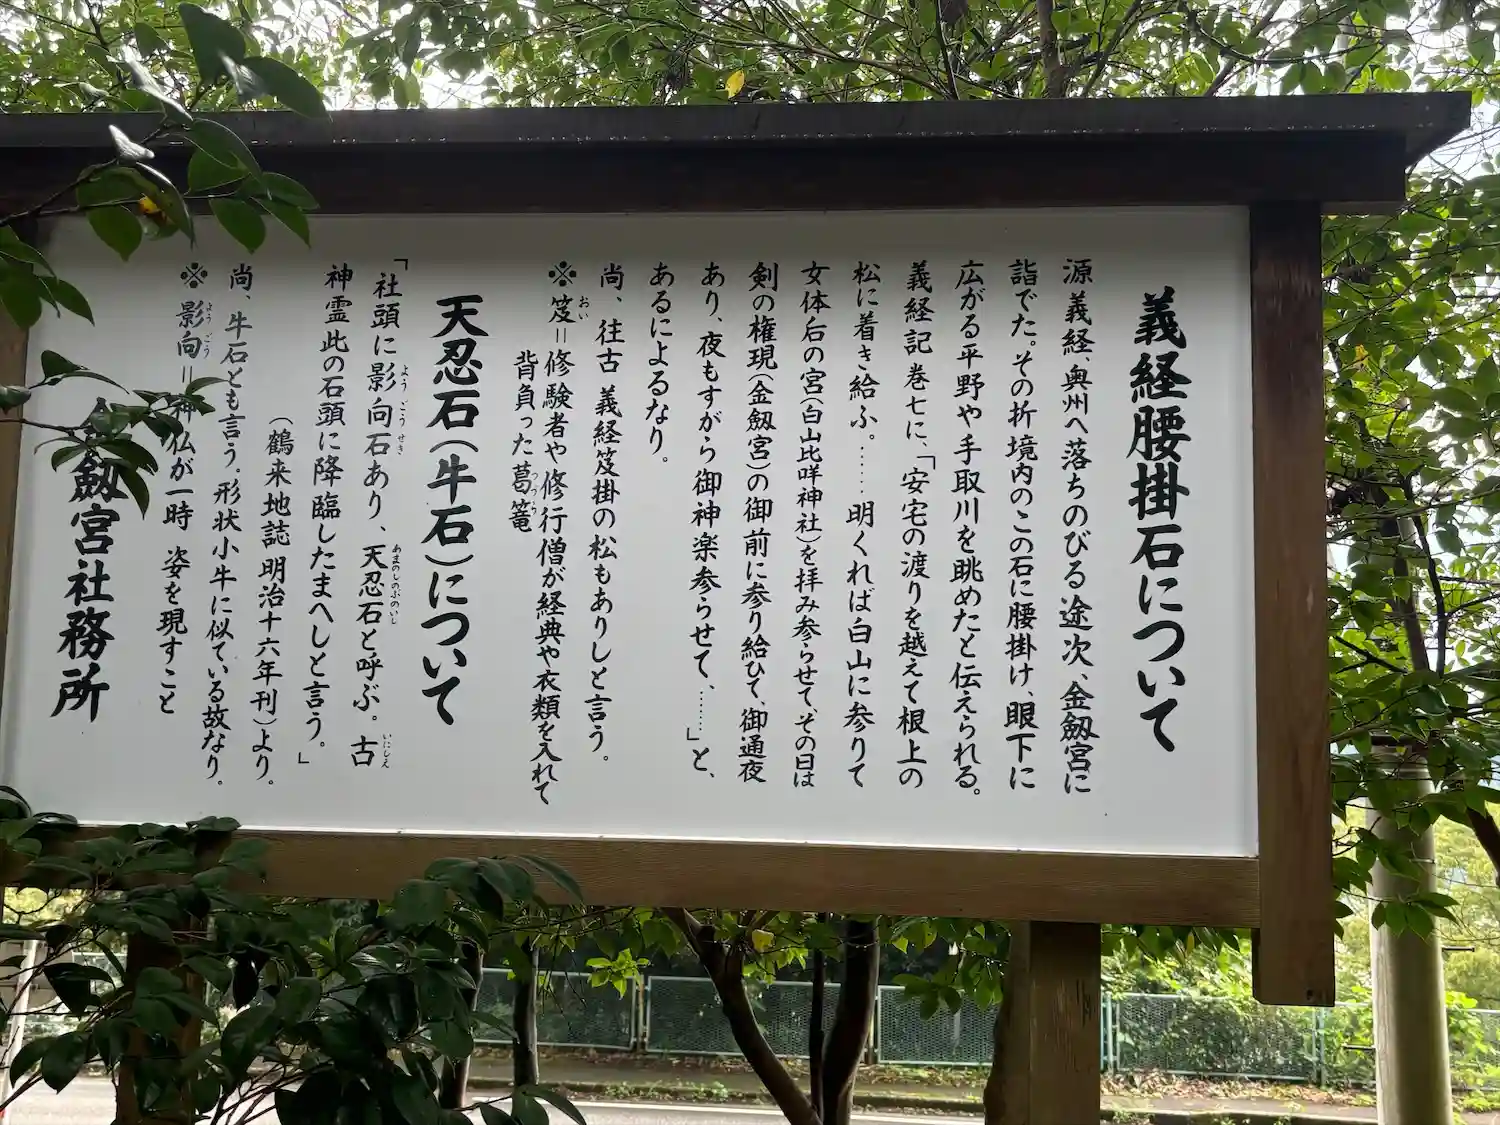 義経腰掛石について
源義経、奥州へ落ちのびる途次、金劔宮に
詣でた。その折境内のこの石に腰掛け、眼下に
広がる平野や手取川を眺めたと伝えられる。
義経記 巻七に、「安宅の渡りを越えて根上の
松に着き給ふ。……明くれば白山に参りて
女体后の宮(白山比咩神社)を拝み参らせて、その日は
剣の権現(金劔宮)の御前に参り給ひて、御通夜
あり、夜もすがら御神楽参らせて、……」と、
あるによるなり。
尚、往古 義経笈掛の松もありしと言う。
※笈=修験者や修行僧が経典や衣類を入れて
おい
背負った葛篭
つづら
天忍石(牛石)について
「社頭に影向石あり、天忍石と呼ぶ。古
ようごうせき
あまのしのぶのいし
いにしえ
神霊此の石頭に降臨したまへしと言う。」
(鶴来地誌 明治十六年刊)より。
尚、牛石とも言う。形状小牛に似ている故なり。
※影向=神仏が一時 姿を現すこと
ようごう
劔宮社務所